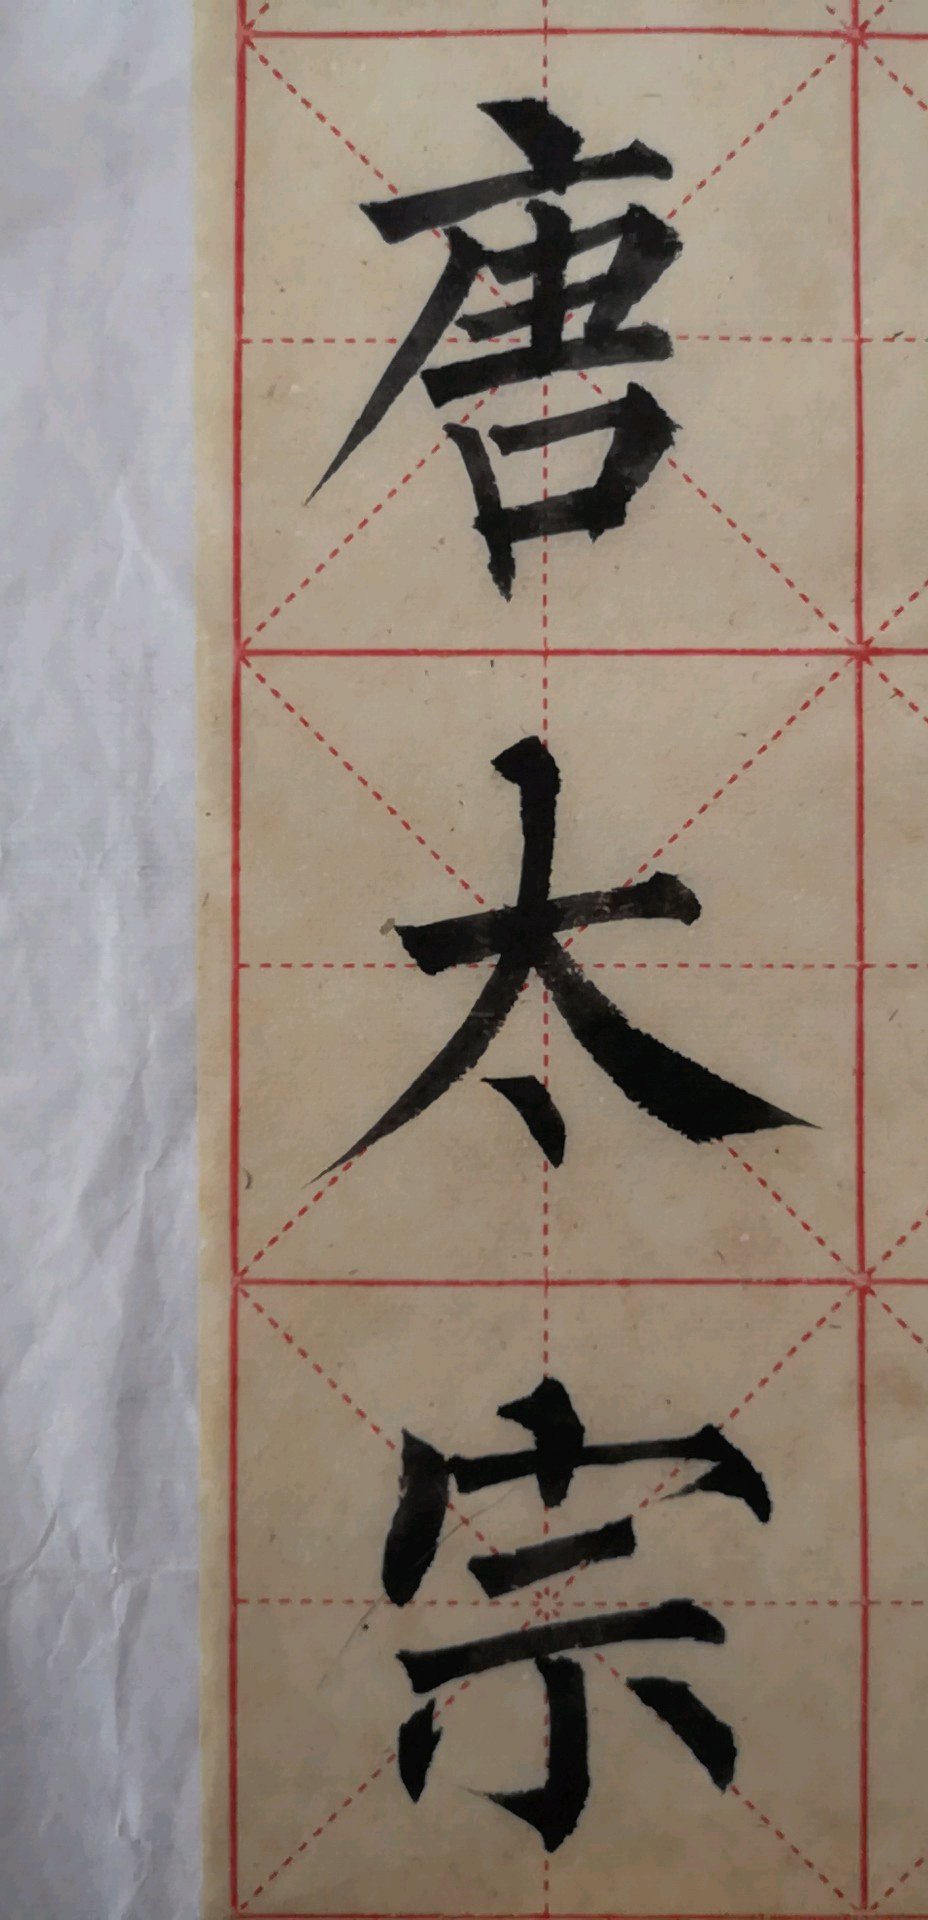 唐太宗